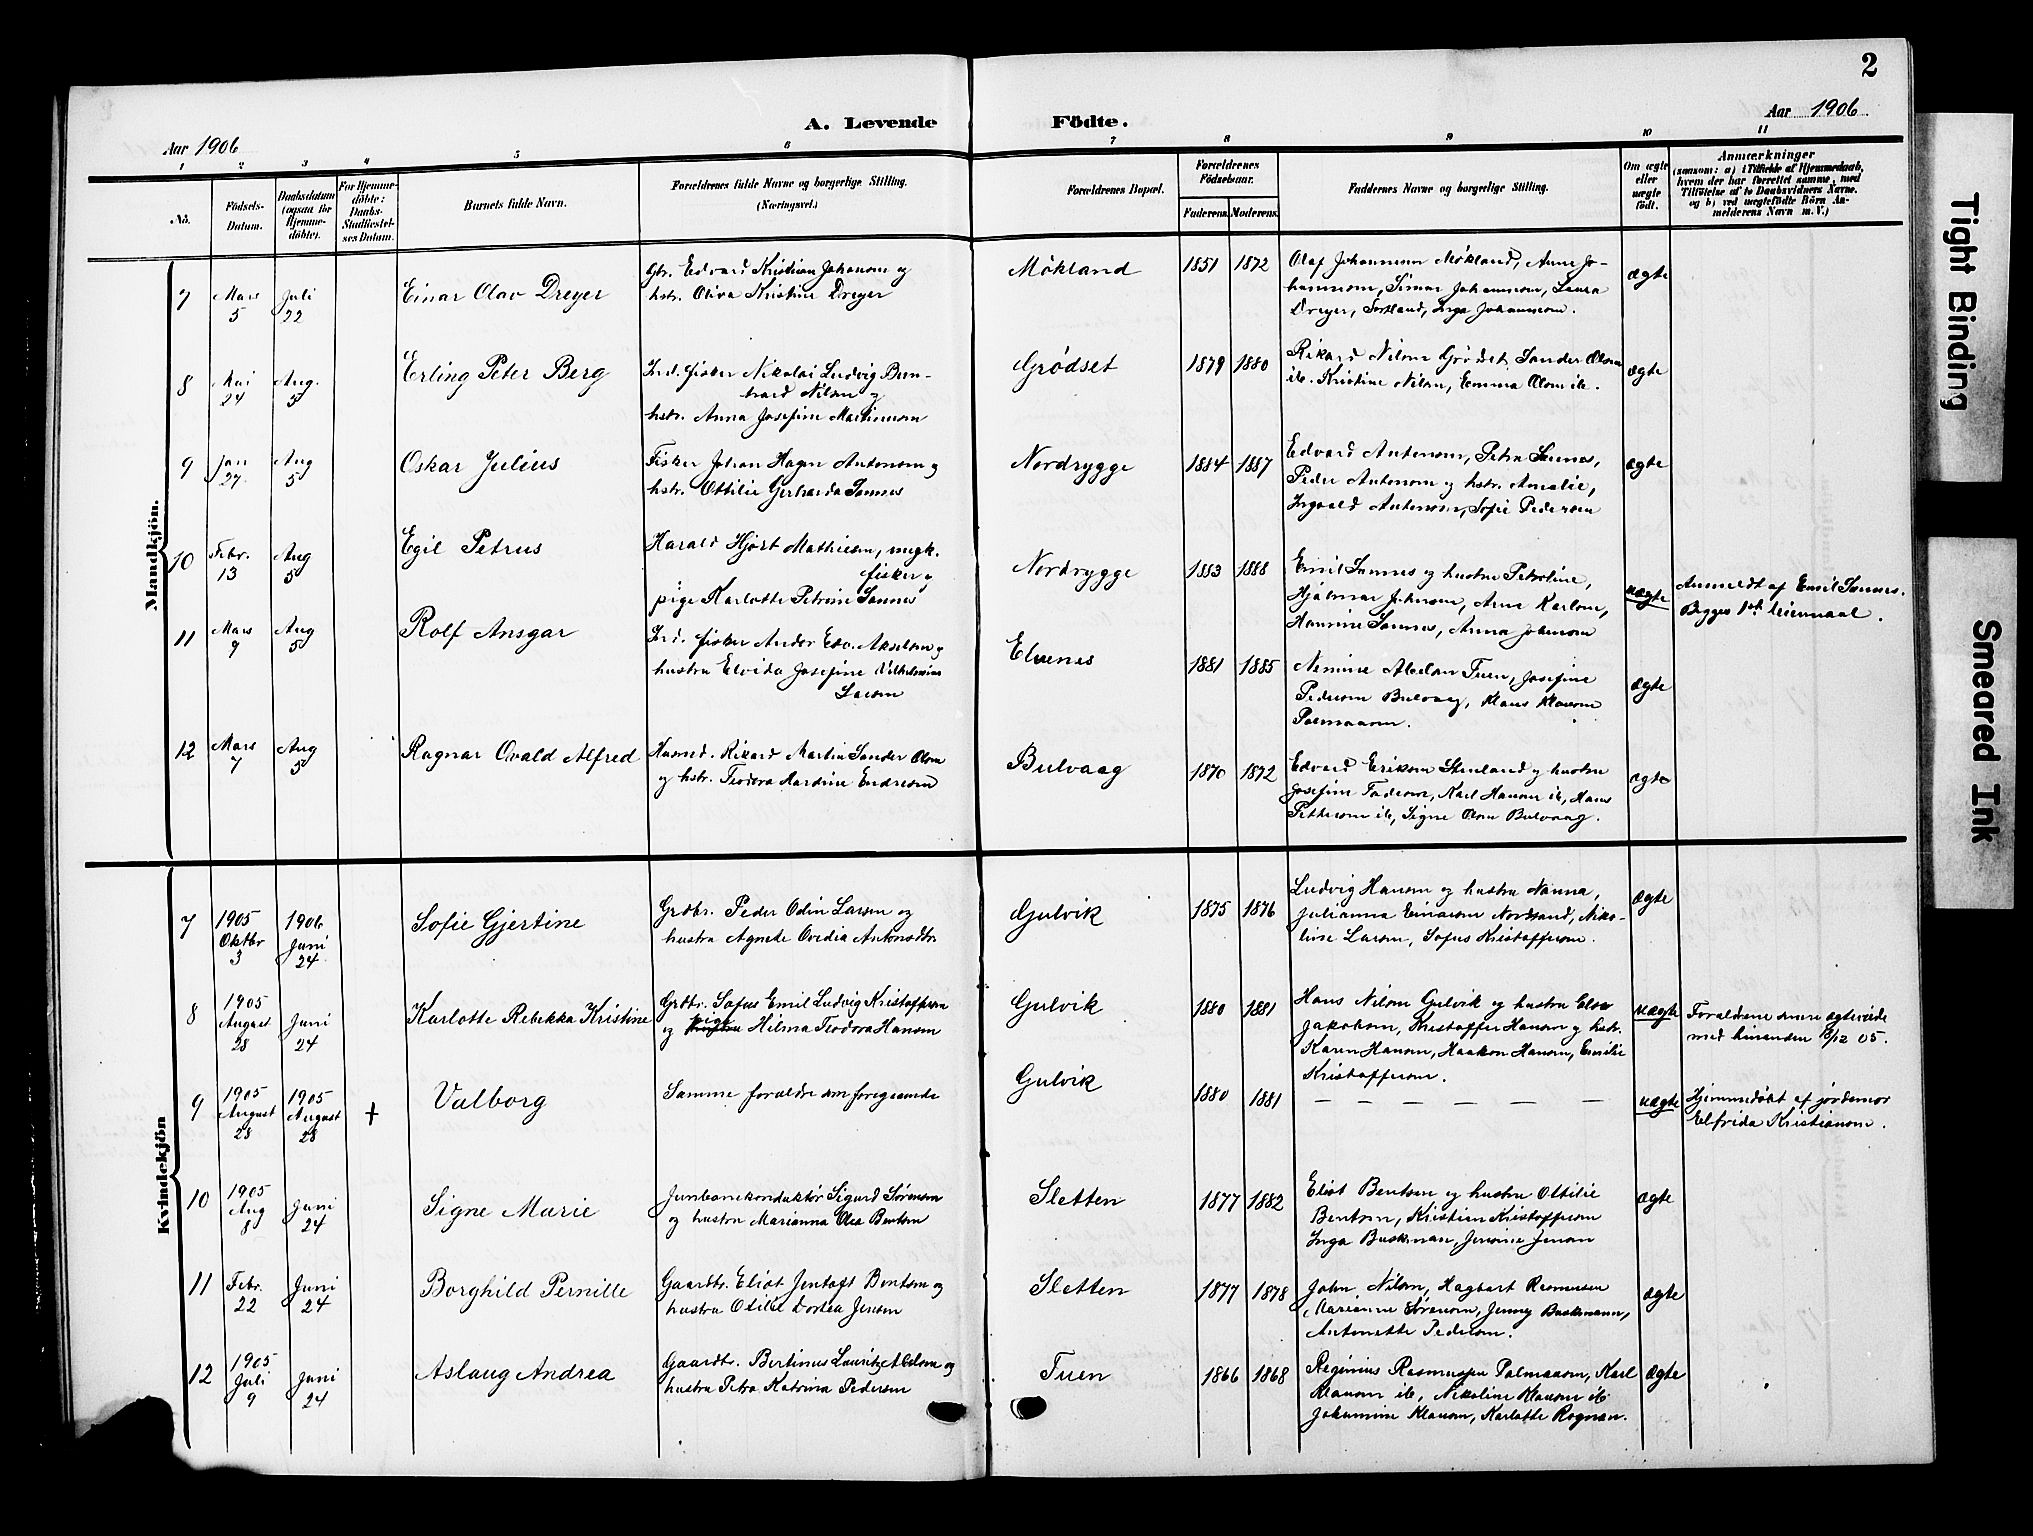 2
A. Levende Födte.
Aar 1906
Aar 1906
1 2 3 4 5 6 7 8 9 10 11
No.
Födsels-Datum.
Daabsdatum (ogsaa for Hjemme-döbte).
For Hjemme-döbte: Daabs-Stadfæstel-ses Datum.
Barnets fulde Navn.
Forældrenes fulde Navne og borgerlige Stilling. (Næringsvei.)
Forældrenes Bopæl.
Forældrenes Födselsaar.
Faderens. Moderens.
Faddernes Navne og borgerlige Stilling.
Om ægte eller uægte födt.
Anmærkninger
(saasom: a) i Tilfælde af Hjemmedaab, hvem der har forrettet samme, med Tilföielse af to Daabsvidners Navne, og b) ved uægtefödte Börn An-melderens Navn m. V.)
Mandkjön.
7 Mars 5 Juli 22 Einar Olav Dreyer
Gbr. Edvard Kristian Johansen og
hstr. Oliva Kristine Dreyer
Møkland 1851 1872
Olaf Johannesen Møkland, Anne Jo-
hannesen, Simon Johannesen, Laura
Dreyer, Sortland, Inga Johannesen.
ægte
8 Mai 24 Aug. 5 Erling Peter Berg
Ind. fisker Nikolai Ludvig Bern-
hard Nilsen og
hstr. Anna Josefine Martinusen
Grødset 1879 1880
Rikard Nilsen Grødset, Sander Olsen
ib. Kristine Nilsen, Emma Olsen ib.
ægte
9 Jan 27 Aug 5 Oskar Julius
Fisker Johan Hagen Antonsen og
hstr. Ottilie Gerharda Sannes
Nordrygge 1884 1887
Edvard Antonsen, Petra Sannes,
Peder Antonsen og hstr. Amalie,
Ingvald Antonsen, Sofie Pedersen
ægte
10 Febr. 13 Aug 5 Egil Petrus
Harald Hjort Mathisen, ungk.
fisker og
pige Karlotte Petrine Sannes
Nordrygge 1883 1888
Emil Sannes og hustru Petroline,
Hjalmar Johnsen, Arne Karlsen,
Hansine Sannes, Anna Johnsen
uægte
Anmeldt af Emil Sannes.
Begges 1ste leiermaal.
11 Mars 9 Aug 5 Rolf Ansgar
Ind. fisker Ander Edv. Akselsen og
hustru Elvida Josefine Vilhelmine
Larsen
Elvenes 1881 1885
Nimine Abelsen Tuen, Josefine
Pedersen Bulvaag, Klaus Klausen
Palmaasen.
ægte
12 Mars 7 Aug 5 Ragnar Ovald Alfred
Husmd. Rikard Martin Sander Olsen
og hstr. Teodora Hardine Endresen
Bulvaag 1870 1872
Edvard Eriksen Stenland og hustru
Josefine, Karl Hansen ib, Hans
Pettersen ib, Signe Olsen Bulvaag.
ægte
Kvindekjön
7 1905 Oktbr 3 1906 Juni 24 Sofie Gjertine
Grdbr. Peder Odin Larsen og
hustru Agnete Ovedia Antonsdtr
Gulvik 1875 1876
Ludvig Hansen og hustru Nanna,
Julianna Einarsen Nordsand, Niko-
line Larsen, Sofus Kristoffersen.
ægte
8 1905 August 28 Juni 24 Karlotte Rebekka Kristine
Grdbr. Sofus Emil Ludvig Kristoffersen
og hustru pige Hilma Teodora Hansen
Gulvik 1880 1881
Hans Nilsen Gulvik og hustru Elen
Jakobsen, Kristoffer Hansen og hstr.
Karen Hansen, Haakon Hansen, Emilie
Kristoffersen.
uægte
Forældrene senere ægteviede
med hinanden 18/12 05.
9 1905 August 28 1905 August 28 + Valborg
Samme forældre som foregaaende
Gulvik 1880 1881
— — — — — —
uægte
Hjemmedøbt af jordemor
Elfrida Kristiansen.
10 1905 Aug 8 Juni 24 Signe Marie
Jernbanekonduktør Sigurd Sørensen
og hustru Marianna Olea Bentsen
Sletten 1877 1882
Eliot Bentsen og hustru Ottilie
Bentsen, Kristian Kristoffersen
Inga Buckman, Jensine Jensen
ægte
11 Febr. 22 Juni 24 Borghild Pernille
Gaardbr. Eliot Jentoft Bentsen og
hustru Otilie Dortea Jensen
Sletten 1877 1878
John Nilsen, Hagbart Rasmussen
Marianne Sørensen, Jenny Buckmann,
Antonette Pedersen.
ægte
12 1905 Juli 9 Juni 24 Aslaug Andrea
Gaardbr. Bertinus Lauritz Abelsen og
hustru Petra Katrina Pedersen
Tuen 1866 1868
Reginius Rasmussen Palmaasen, Karl
Klausen ib, Nikoline Klausen ib
Johannine Klausen, Karlotte Rognan.
ægte
Tight Binding
Smeared Ink